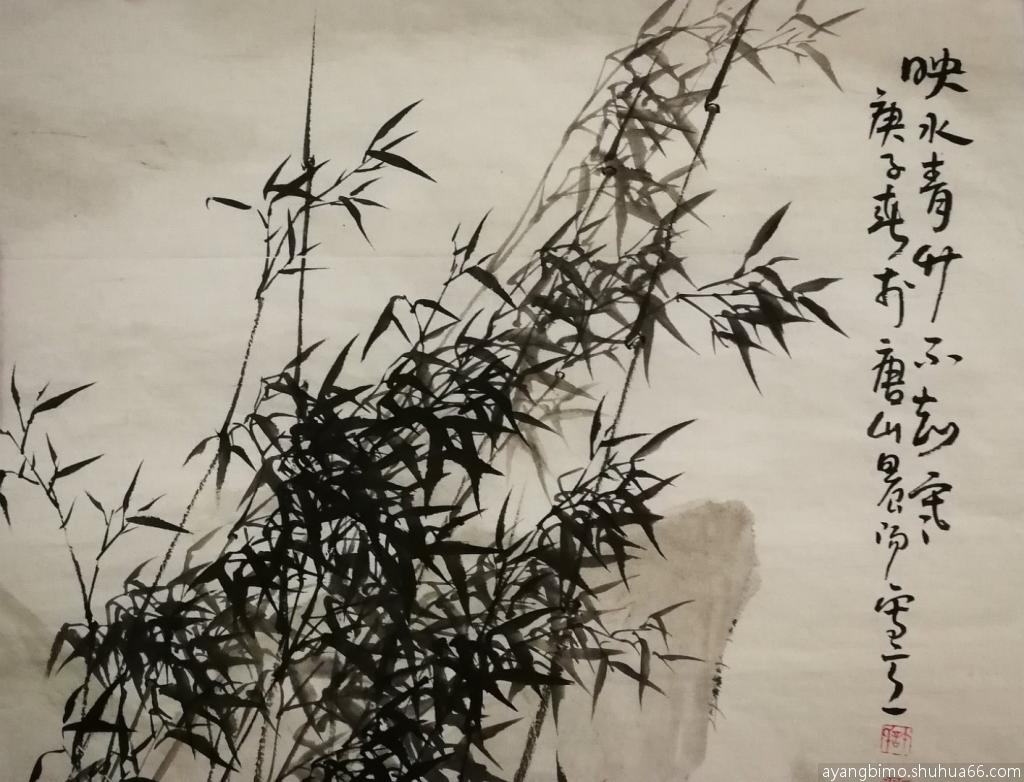 映水青竹不知寒
庚子春於唐山晨阳雪亭
ayangbimo.shuhua66.com